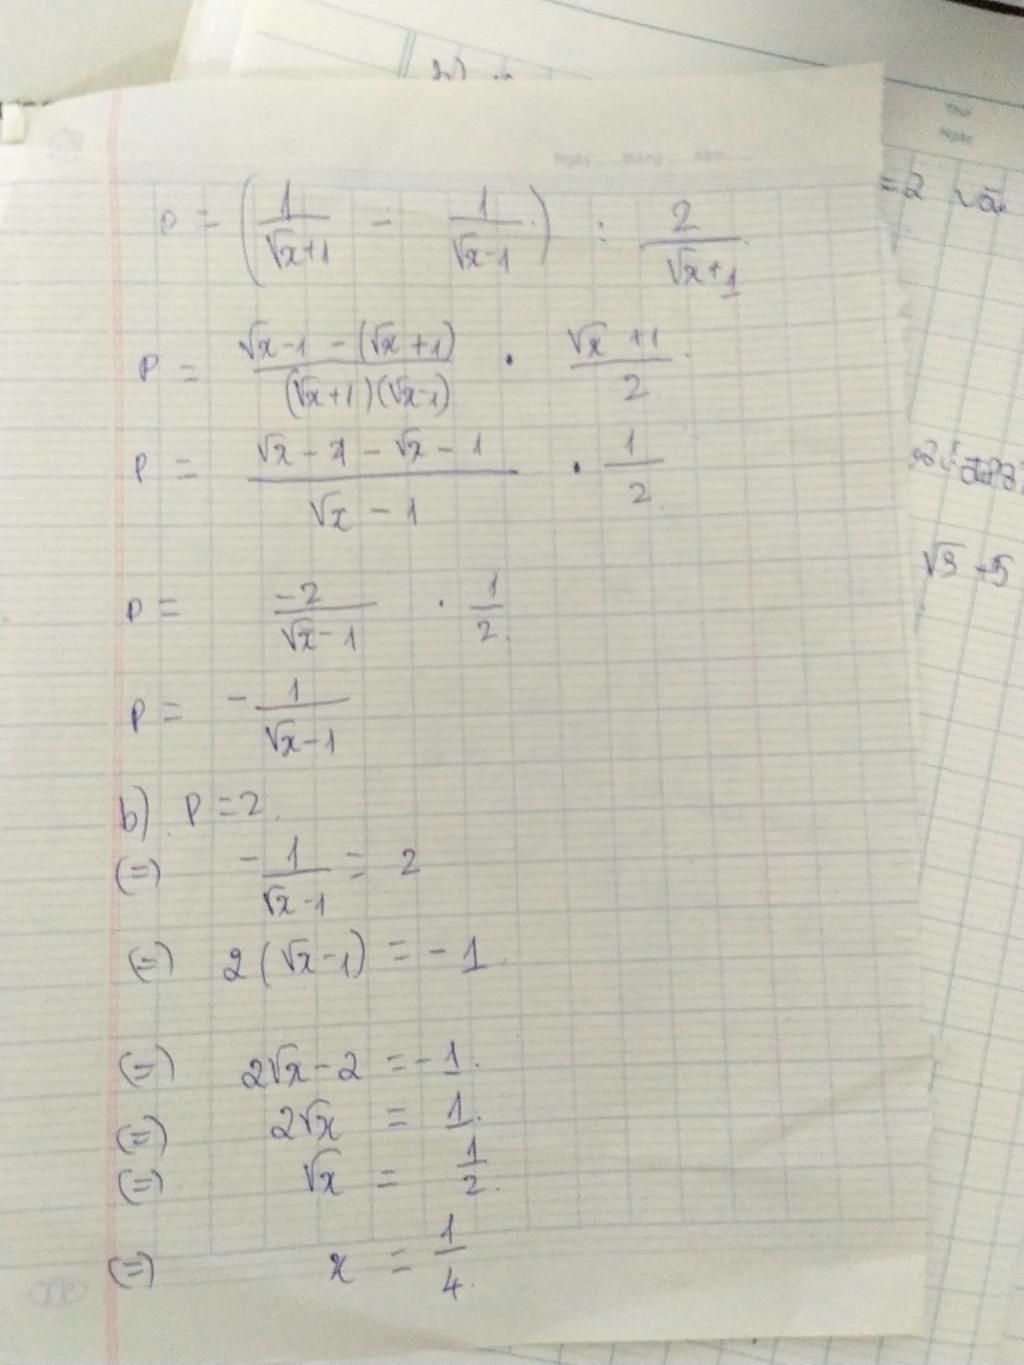 P = (1/(√x+1) - 1/(√x-1)) : 2/(√x+1)
P = (√x-1 -(√x+1))/((√x+1)(√x-1)) . (√x+1)/2
P = (√x - 1 - √x - 1)/(√x - 1) . 1/2
P = -2/(√x-1) . 1/2
P = - 1/(√x-1)
b) P = 2
(=) - 1/(√x-1) = 2
(=) 2(√x-1) = -1
(=) 2√x-2 = -1.
(=) 2√x = 1.
(=) √x = 1/2.
(=) x = 1/4.
= 2
√3 + 5